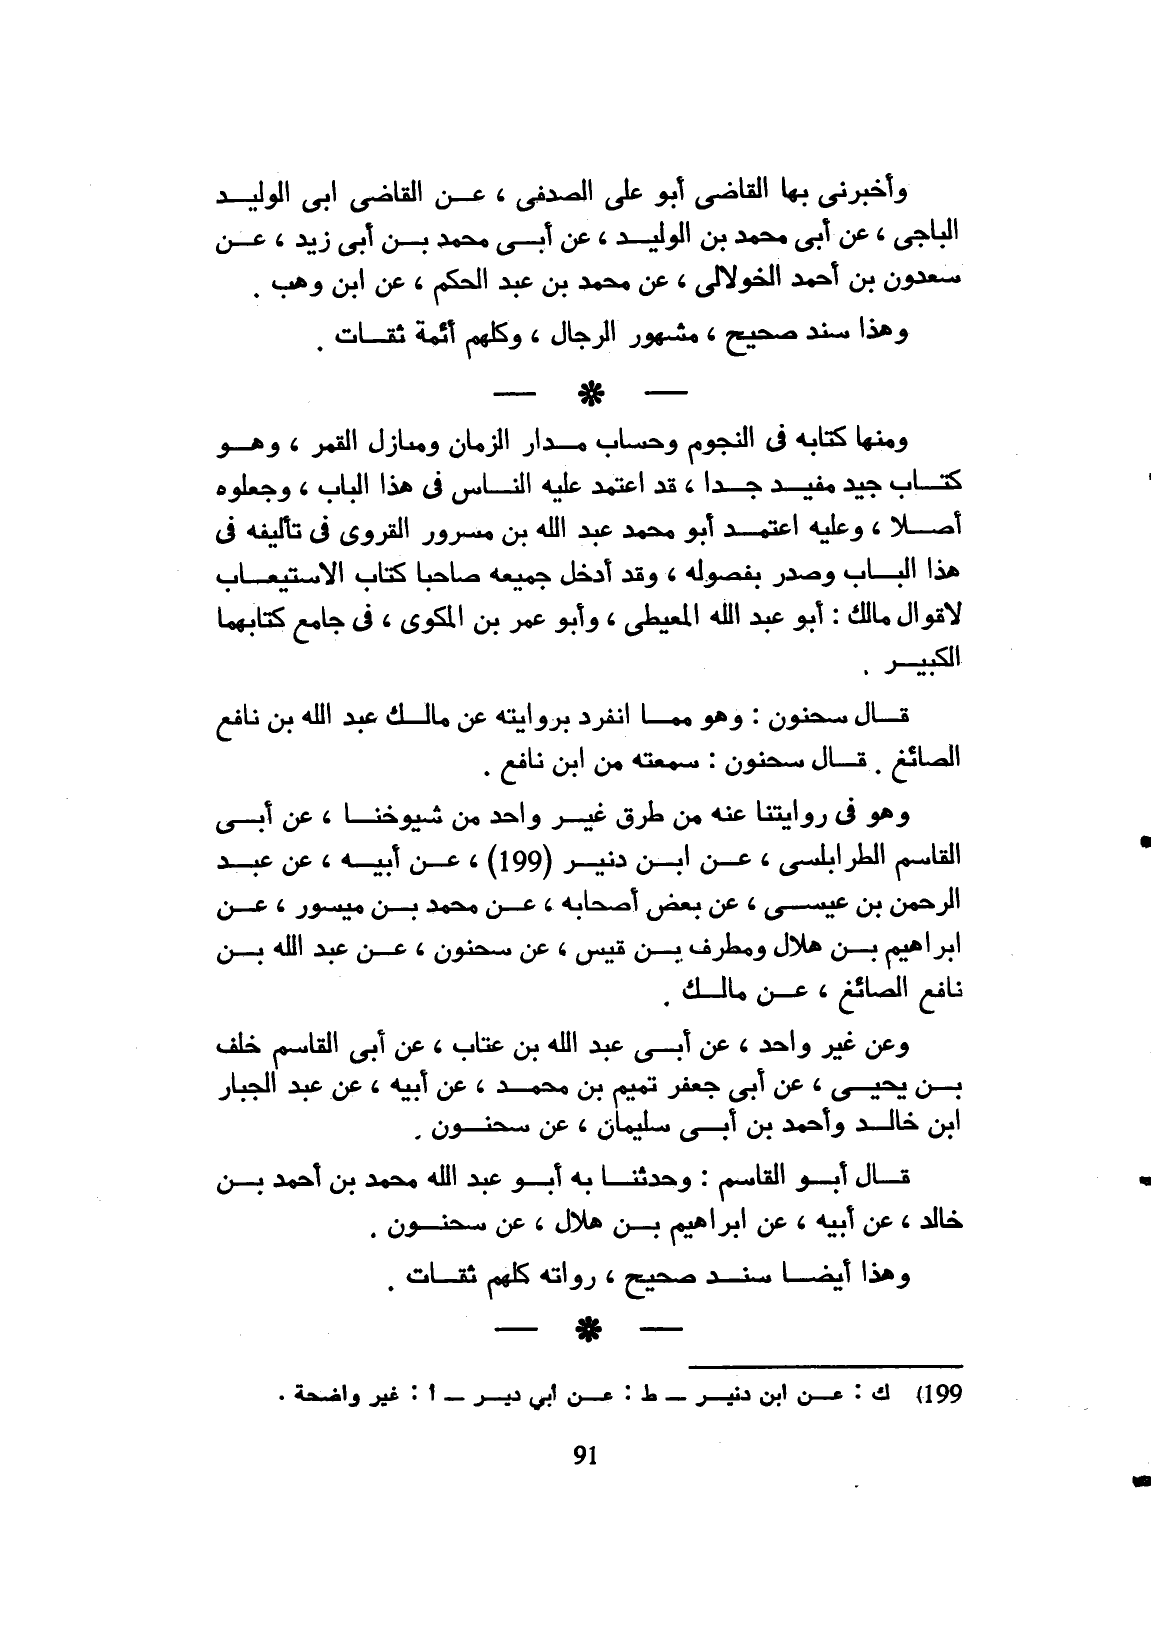 وأخبرنى بها القاضى أبو على الصدفى ، عن القاضى ابى الوليد
الباجى ، عن أبى محمد بن الوليد ، عن أبى محمد بن أبى زيد ، عن
سعدون بن أحمد الخولالى ، عن محمد بن عبد الحكم ، عن ابن وهب .
وهذا سند صحيح ، مشهور الرجال ، وكلهم أئمة ثقات .
— * —
ومنها كتابه فى النجوم وحساب مدار الزمان ومنازل القمر ، وهو
كتاب جيد مفيد جدا ، قد اعتمد عليه الناس فى هذا الباب ، وجعلوه
أصلا ، وعليه اعتمد أبو محمد عبد الله بن مسرور القروى فى تأليفه فى
هذا الباب وصدر بفصوله ، وقد أدخل جميعه صاحبا كتاب الاستيعاب
لاقوال مالك : أبو عبد الله المعيطى ، وأبو عمر بن المكوى ، فى جامع كتابهما
الكبير .
قال سحنون : وهو مما انفرد بروايته عن مالك عبد الله بن نافع
الصائغ . قال سحنون : سمعته من ابن نافع .
وهو فى روايتنا عنه من طرق غير واحد من شيوخنا ، عن أبى
القاسم الطرابلسى ، عن ابن دنير (199) ، عن أبيه ، عن عبد
الرحمن بن عيسى ، عن بعض أصحابه ، عن محمد بن ميسور ، عن
ابراهيم بن هلال ومطرف بن قيس ، عن سحنون ، عن عبد الله بن
نافع الصائغ ، عن مالك .
وعن غير واحد ، عن أبى عبد الله بن عتاب ، عن أبى القاسم خلف
بن يحيى ، عن أبى جعفر تميم بن محمد ، عن أبيه ، عن عبد الجبار
ابن خالد وأحمد بن أبى سليمان ، عن سحنون .
قال أبو القاسم : وحدثنا به أبو عبد الله محمد بن أحمد بن
خالد ، عن أبيه ، عن ابراهيم بن هلال ، عن سحنون .
وهذا أيضا سند صحيح ، رواته كلهم ثقات .
— * —
199) ك : عن ابن دنير — ط : عن ابي دير — ا : غير واضحة .
91